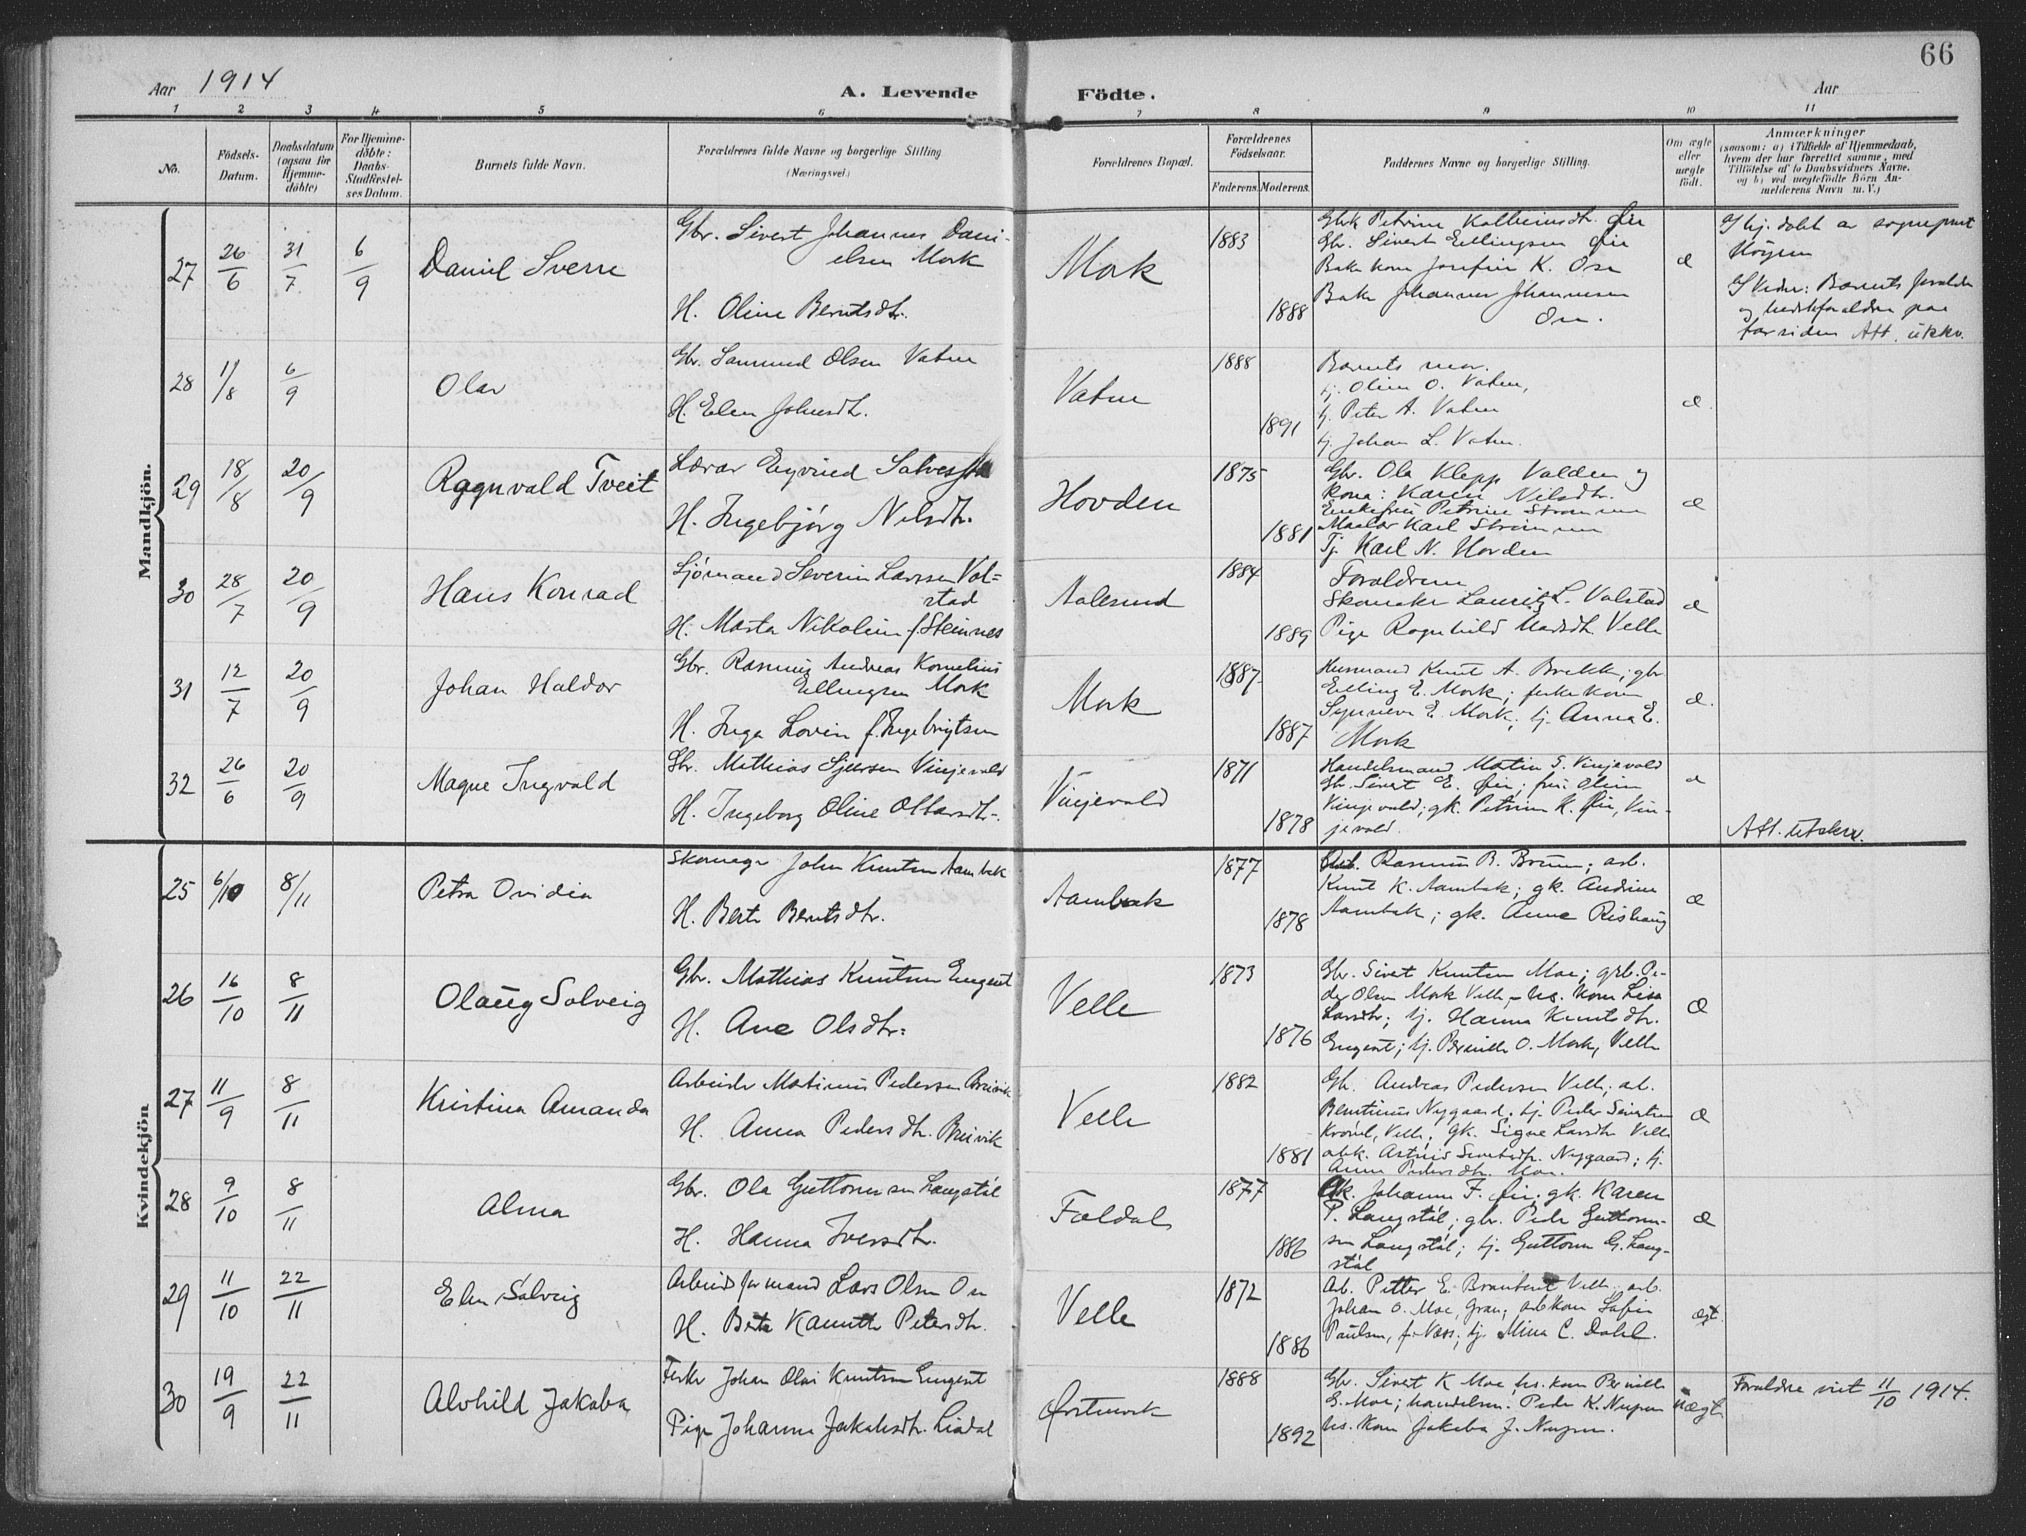 66
Aar 1914
A. Levende Födte.
Aar
1 2 3 4 5 6 7 8 9 10 11
No.
Födsels-Datum.
Daabsdatum (ogsaa for Hjemme-döbte)
For Hjemme-döbte: Daabs-Stadfæstel-ses Datum.
Barnets fulde Navn.
Forældrenes fulde Navne og borgerlige Stilling (Næringsvei.)
Forældrenes Bopæl.
Forældrenes Födselsaar.
Faderens. Moderens.
Faddernes Navne og borgerlige Stilling.
Om ægte eller uægte födt.
Anmærkninger
(saasom: a) i Tilfælde af Hjemmedaab,
hvem der har forrettet samme, med
Tilföielse af to Daabsvidners Navne.
og b) ved uægtefödte Börn An-
melderens Navn m. V.)
Mandkjön.
27 26/6 31/7 6/9 Daniel Sverre
Gbr. Sivert Johannes Dani-
elsen Mork
H. Oline Berntsdtr.
Mork 1883 1888
Gbr. Sivert Ellingsen Øie
Johannes Johannesen
Ose.
æ
I hj. døbt av sogneprest
Høyem
Barnets forældre
forsiden Att. utskr.
28 1/8 6/9 Olav
Gbr. Samund Olsen Vatne
H. Elen Johnsdtr.
Vatne 1888 1891
Barnets mor.
tj. Oline O. Vatne,
tj. Peter A. Vatne
tj. Johan L. Vatne.
æ.
29 18/8 20/9 Ragnvald Tveit
Lærer Eyvind
H. Ingebjørg Nilsdtr.
Hovden 1875 1881
Gbr. Ola Klepp Valden og
kona: Karen Nilsdtr.
Enkefru Petrine
Maaler Karl
Tj. Karl N. Hovden
æ
30 28/7 20/9 Hans Konrad
Sjømand Severin Larssen Vol-
stad
H. Marta Nikoline f. Steinnes
Aalesund 1884 1889
Forældrene
Skomaker Lauritz L. Volstad
Pige Ragnhild Madsdtr. Velle
æ
31 12/7 20/9 Johan Haldor
Gbr. Rasmus Andreas Kornelius
Ellingsen Mork
H. Inga Lovise f. Ingebrigtsen
Mork 1887 1887
Husmand Knut A. Brekke; gbr.
Elling E. Mork; fiskekone
Synneve E. Mork; tj. Anna E.
Mork
æ.
32 26/6 20/9 Magne Ingvald
Gbr. Mathias Sjursen Vinjevold
H. Ingeborg Oline Ottarsdtr.
Vinjevold 1871 1878
Handelsmand Martin S. Vinjevold
Gbr. Sivert E. Øie; fru Oline
Vinjevold; gk. Petrine K. Øie, Vin-
jevold.
æ
Att. utskr.
Kvindekjön
25 6/10 8/11 Petra Ovidia
Skomager John Knutsen Aambak
H. Berte Berntsdtr.
Aambak 1877 1878
Arb. Rasmus B. Bruun; arb.
Knut K. Aambak; gk. Andrine
Aambak; gk. Anne Rishaug
æ
26 16/10 8/11 Olaug Solveig
Gbr. Mathias Knutsen Engeset
H. Ane Olsdtr.
Velle 1873 1876
Gbr. Sivert Knutsen Moe; grb. Pe-
der Olsen Mork Velle, hs. kone Lisa
Larsdtr; tj. Hanna Knutsdtr.
Engeset; tj. Pernille O. Mork, Velle
æ
27 11/9 8/11 Kristina Amanda
Arbeider Martinus Pedersen Breivik
H. Anna Pedersdtr. Breivik
Velle 1882 1881
Gbr. Andreas Pedersen Velle; arb.
Berntinus Nygaard, tj. Peder Sivertsen
Velle; gk. Signe Larsdtr Velle
arbk. Astrid Sivertsdtr. Nygaard; tj.
Anne Pedersdtr. Moe.
æ
28 9/10 8/11 Alma
Gbr. Ola Guttormsen Langstøl
H. Hanna Iversdtr.
Foldal 1877 1886
Gk. Johanne F. Øie; gk. Karen
P. Langstøl; gbr. Peder Guttorm-
sen Langstøl; tj. Guttorm G. Lang-
støl
æ
29 11/10 22/11 Elen Solveig
Arbeidsformand Lars Olsen Ose
H. Berte Kanutte Petersdtr.
Velle 1872 1886
Arb. Petter E. Velle; arb.
Johan O. Moe, arbkone
Paulsen, f. Næss; tj. Mina C. Dahl.
ægt.
30 19/9 22/11 Alvhild Jakoba
Fisker Johan Olai Knutsen Engeset
Pige Johanna Jakobsdtr. Lindal
Ørstenvik 1888 1892
Gbr. Sivert K Moe, hs. kone Pernille
E. Moe; handelsm. Peder K. Nupen
hs. kone Jakoba J. Nupen.
uægt.
Forældre viet 11/10 1914.